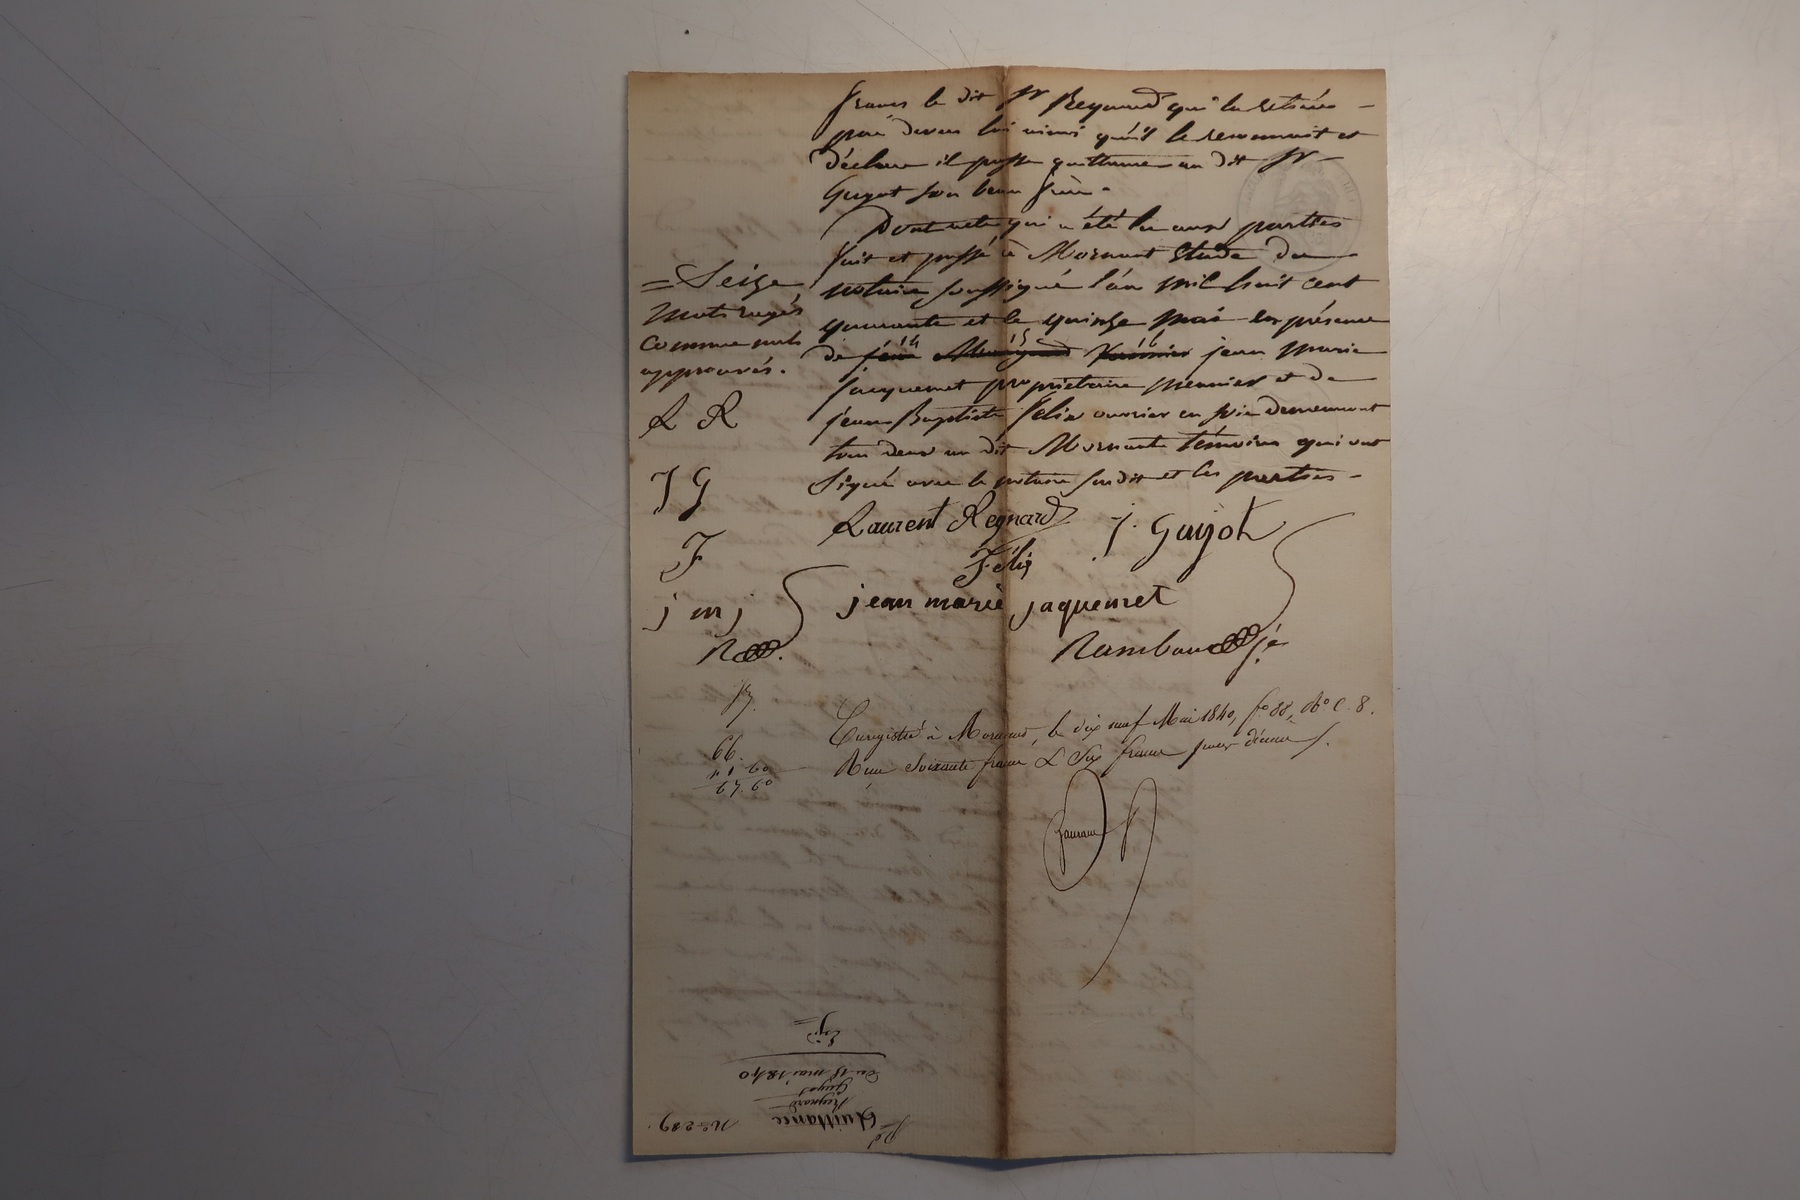 francs le dit Sr Regnard qui les retirés
par devers lui ainsi qu'il le reconnait et
déclare il passe quittance au dit Sr
Guyot son beau frère.
Dont acte qui a été lu aux parties
fait et passé à Mornant Etude du
notaire soussigné l'an mil huit cent
quarante et le quinze mai en présence
de jean marie
jacquemet propriétaire meunier et de
jean Baptiste Felix ouvrier en soie demeurant
tous deux au dit Mornant témoins qui ont
signé avec le notaire susdit et les parties
= Seize
mots rayés
comme nuls
approuvés.
L R
J G
F
j m j
R
Laurent Regnard
J. Guyot
Félix
jean marie jaquemet
Rambau
Enregistré à Mornant, le dix neuf Mai 1840, fo 88, Ro C. 8.
Reçu Soixante francs & Six francs pour décime
66.
1 60
67. 60
Quittance
Regnard
Guyot
du 15 mai 1840
No 289